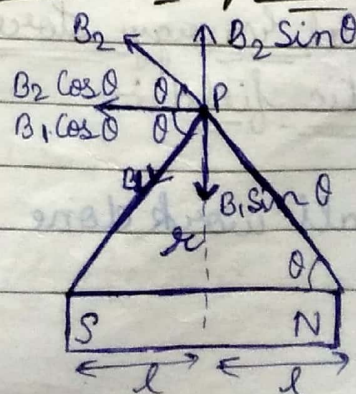 B₂ B₂ Sinθ
B₂ Cosθ θ P
B₁ Cosθ θ
B₁ B₁ Sin θ
r θ
S N
l l